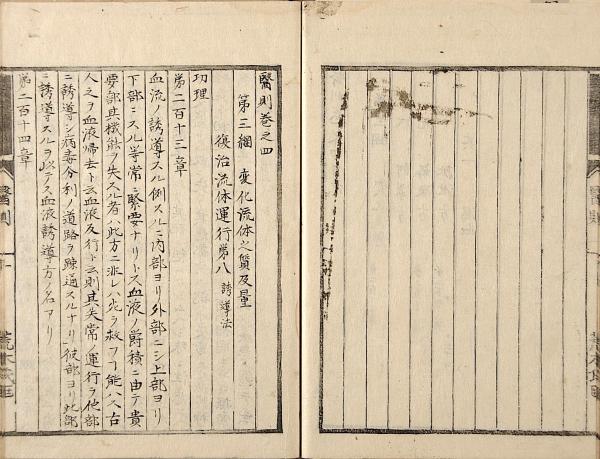 醫則巻之四
第三綱 変化流体之質及量
復治流体運行第八 誘導法
功理
第二百十三章
血流ノ誘導スル例スルニ内部ヨリ外部ニシ上部ヨリ
下部ニスル等常ニ緊要ナリトス血液ノ欝積ニ由テ貴
要部其機能ヲ失スル者ハ此方ニ非レハ此ヲ救フヿ能ハス古
人之ヲ血液帰去ト云血液反行ト云則其失常ノ運行ヲ他部
ニ誘導シ病毒分利ノ道路ヲ疎通スルナリ彼部ヨリ此部
ニ誘導スルヲ以テス血液誘導方ノ名アリ
第二百十四章
醫則